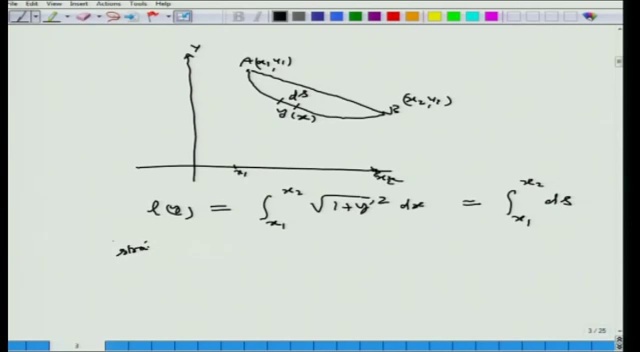 File Edit View Insert Actions Tools Help
Y
A(x₁,y₁)
ds
B (x₂,y₁)
y(x)
x₁
l(y) = ∫_{x₁}^{x₂} √1+y'² dx = ∫_{x₁}^{x₂} ds
strai
3 / 25
3